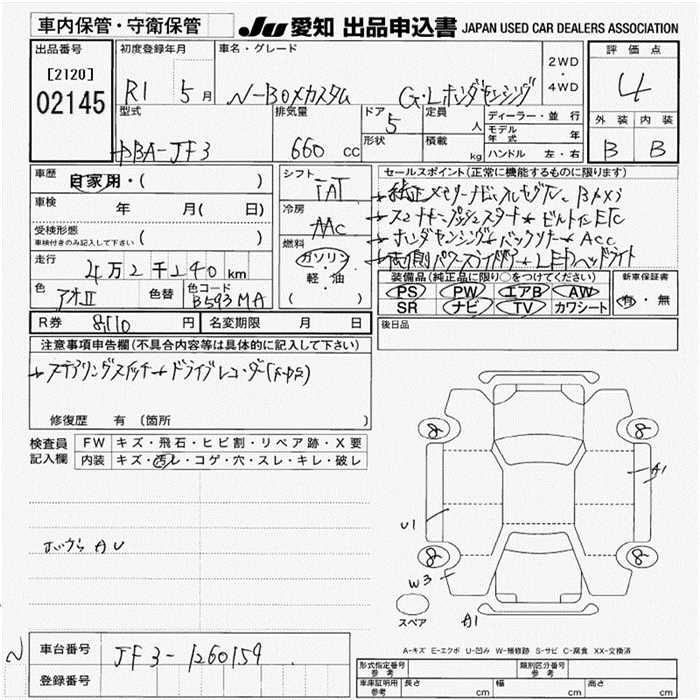 車内保管・守衛保管
JU 愛知 出品申込書 JAPAN USED CAR DEALERS ASSOCIATION
出品番号
[2120]
02145
初度登録年月
R1 5月
車名・グレード
N-BOXカスタム G・Lホンダセンシング
2WD・4WD
評価点
4
外装 内装
B B
型式
DBA-JF3
排気量
660 cc
ドア
5
形状
定員
人
積載
kg
ディーラー・並行
モデル年式 年
ハンドル 左・右
車歴
自家用・( )
車検
年 月( 日)
受検形態
車検付きのみ記入して下さい
( )
走行
4万2千240km
色
アオII
色替
色コード
B593MA
シフト
IAT
冷房
AAC
燃料
ガソリン
・
軽・油
( )
セールスポイント(正常に機能するものに限ります)
純正メモリーナビ・フルセグTV
スマートキー プッシュスタート ビルトインETC
ホンダセンシング バックカメラ ACC
両側パワースライドドア LEDヘッドライト
装備品(純正品に限り○をつけてください)
PS PW エアB AW
SR ナビ TV カワシート
新車保証書
有・無
R券 8110 円 名変期限 月 日
後日品
注意事項申告欄(不具合内容等は具体的に記入して下さい)
ステアリングスイッチ ドライブレコーダー
修復歴 有 (箇所 )
検査員記入欄
FW キズ・飛石・ヒビ割・リペア跡・X要
内装 キズ・汚レ・コゲ・穴・スレ・キレ・破レ
AU
8 8
A1
U1
8 8
W3
A1
スペア
A-キズ E-エクボ U-凹み W-補修跡 S-サビ C-腐食 XX-交換済
N
車台番号 JF3-1260159
登録番号
型式指定番号 参考
類別区分番号 参考
車庫証明用 参考
長さ cm 幅 cm 高さ cm